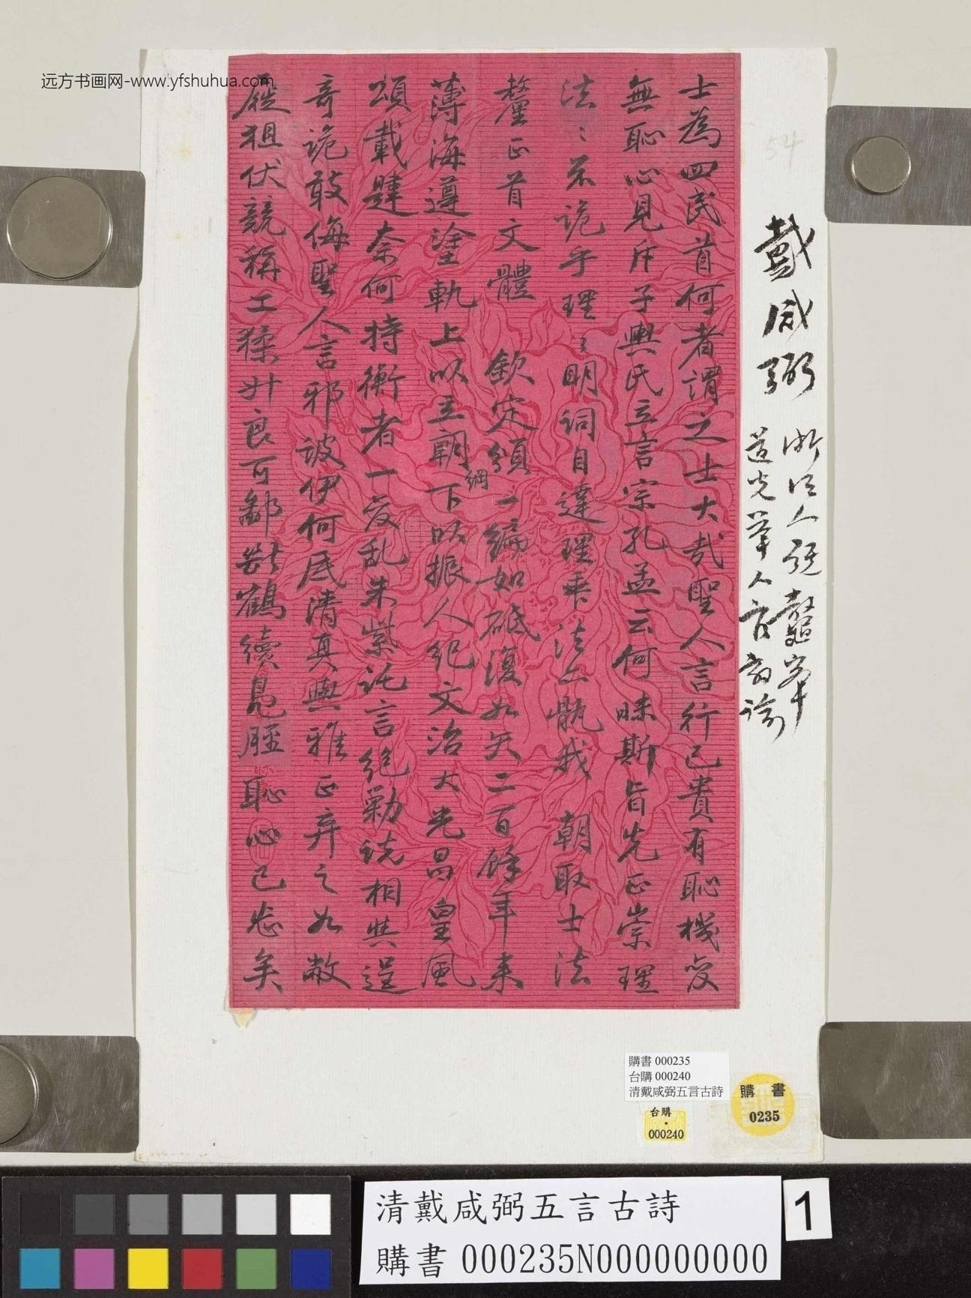 远方书画网-www.yfshuhua.com
54
戴咸弼
浙江人
道光舉人官教諭
士為四民首何者謂之士大哉聖人言行己貴有恥機變
無恥心見斥子輿氏立言宗孔孟云何昧斯旨先正崇理
法〻不詭乎理〻明詞自達理乖法亦骫我 朝取士法
釐正首文體 欽定頒一編如砥復如矢二百餘年來
薄海遵塗軌上以王朝綱下以振人紀文治大光昌皇風
頌載肆奈何持衡者一變亂朱紫託言絕勦說相與逞
奇詭敢侮聖人言邪詖伊何底清真與雅正弃之如敝
屣狙伏競稱工猱升良可鄙斷鶴續鳧脛恥心已忘矣
購書 000235
台購 000240
清戴咸弼五言古詩
台購
000240
購 書
0235
清戴咸弼五言古詩
購書 000235N000000000
1